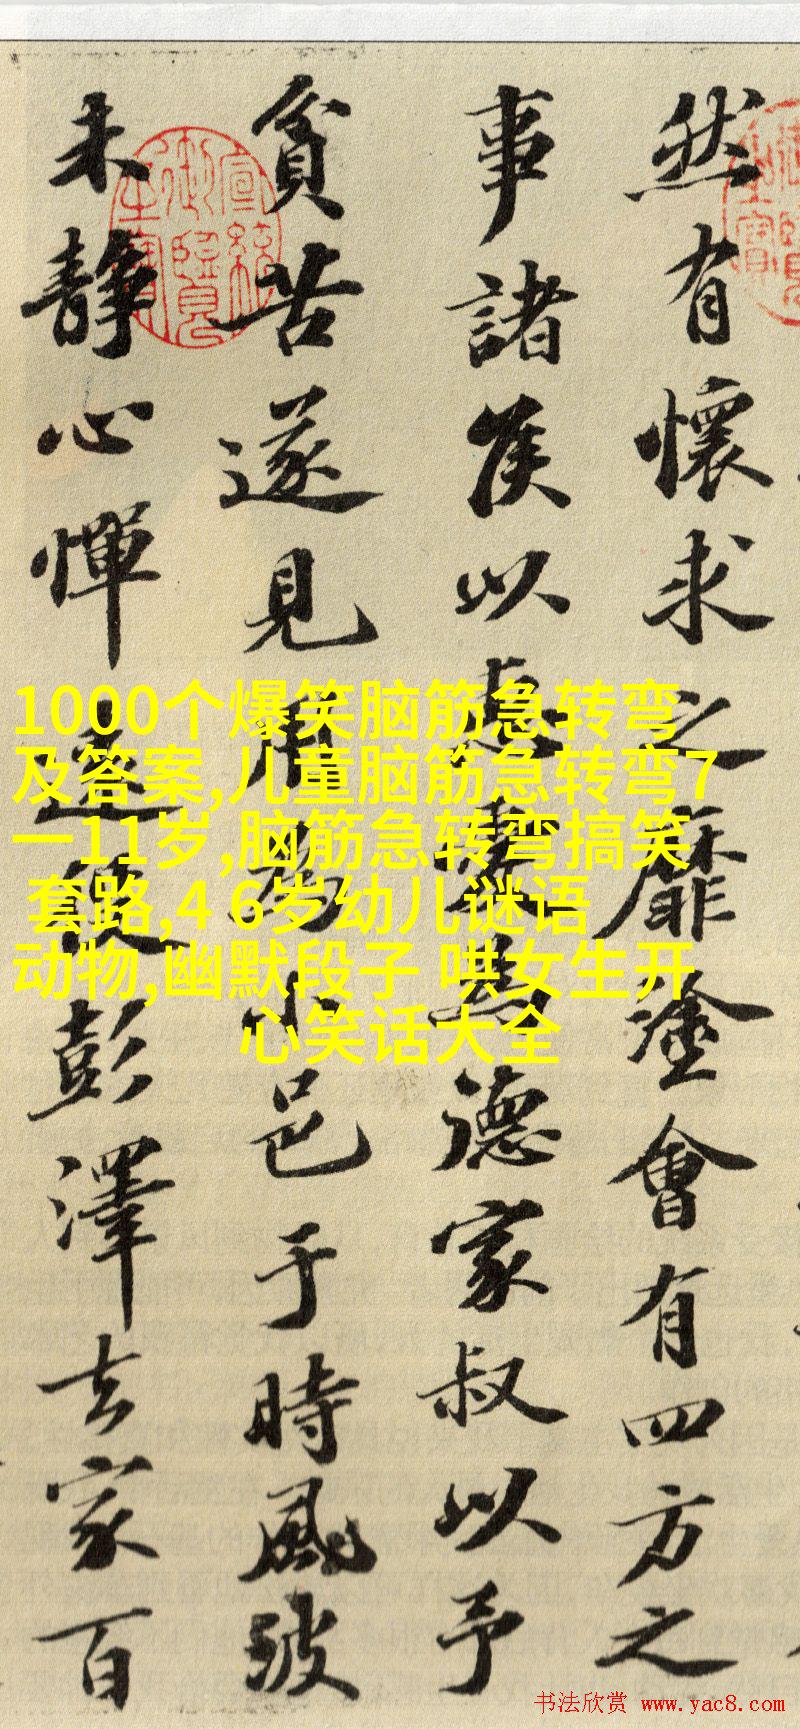 然有懷求之靡塗會有四方之
事諸侯以惠愛為德家叔以予
貧苦遂見用為小邑于時風波
未靜心憚遠役彭澤去家百
宣統御覽之寶
1000个爆笑脑筋急转弯
及答案,儿童脑筋急转弯7
一11岁,脑筋急转弯搞笑
套路,4 6岁幼儿谜语
动物,幽默段子 哄女生开
心笑话大全
书法欣赏 www.yac8.com